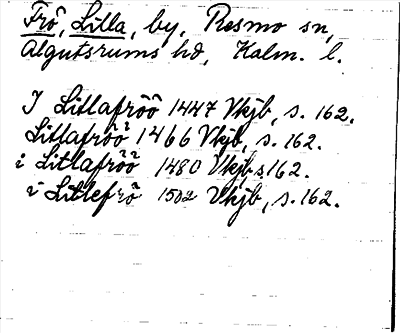 Frö, Lilla, by, Resmo sn,
Algutsrums hd, Kalm. l.
J Litlafröö 1447 Vkjb, s. 162.
Litlafröö 1466 Vkjb, s. 162.
i Litlafröö 1480 Vkjb s 162.
i Litlefrö 1502 Vkjb, s. 162.